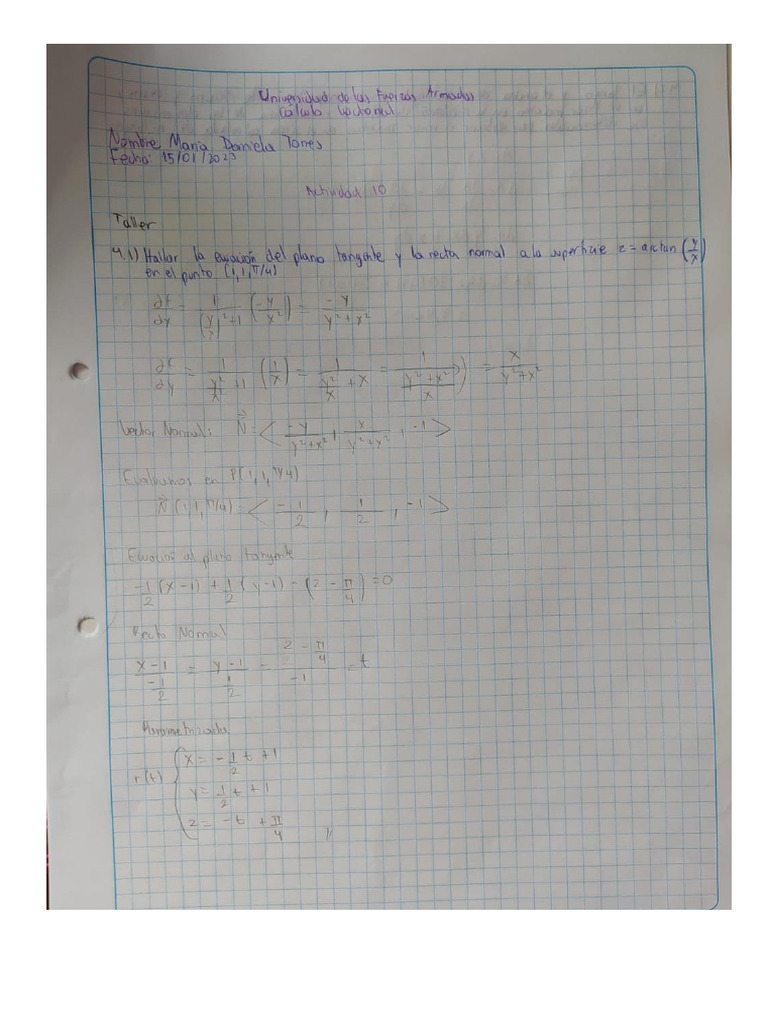 Universidad de las Fuerzas Armadas
Cálculo Vectorial
Nombre María Daniela Torres
Fecha: 15/01/2023
Actividad 10
Taller
4.1) Hallar la ecuación del plano tangente y la recta normal a la superficie z = arctan (y/x)
en el punto (1,1,π/4)
∂f/∂x = 1/((y/x)²+1) (-y/x²) = -y/(y²+x²)
∂f/∂y = 1/(y²/x²+1) (1/x) = 1/(y²/x + x) = 1/((y²+x²)/x) = x/(y²+x²)
Vector Normal: N = < -y/(y²+x²), x/(y²+x²), -1 >
Evaluamos en P(1,1,π/4)
N(1,1,π/4) < -1/2, 1/2, -1 >
Ecuación al plano tangente
-1/2 (x-1) + 1/2 (y-1) - (z - π/4) = 0
Recta Normal
(x-1)/(-1/2) = (y-1)/(1/2) = (z - π/4)/(-1) = t
Parametrizada
r(t) { x = -1/2 t + 1
y = 1/2 t + 1
z = -t + π/4 //